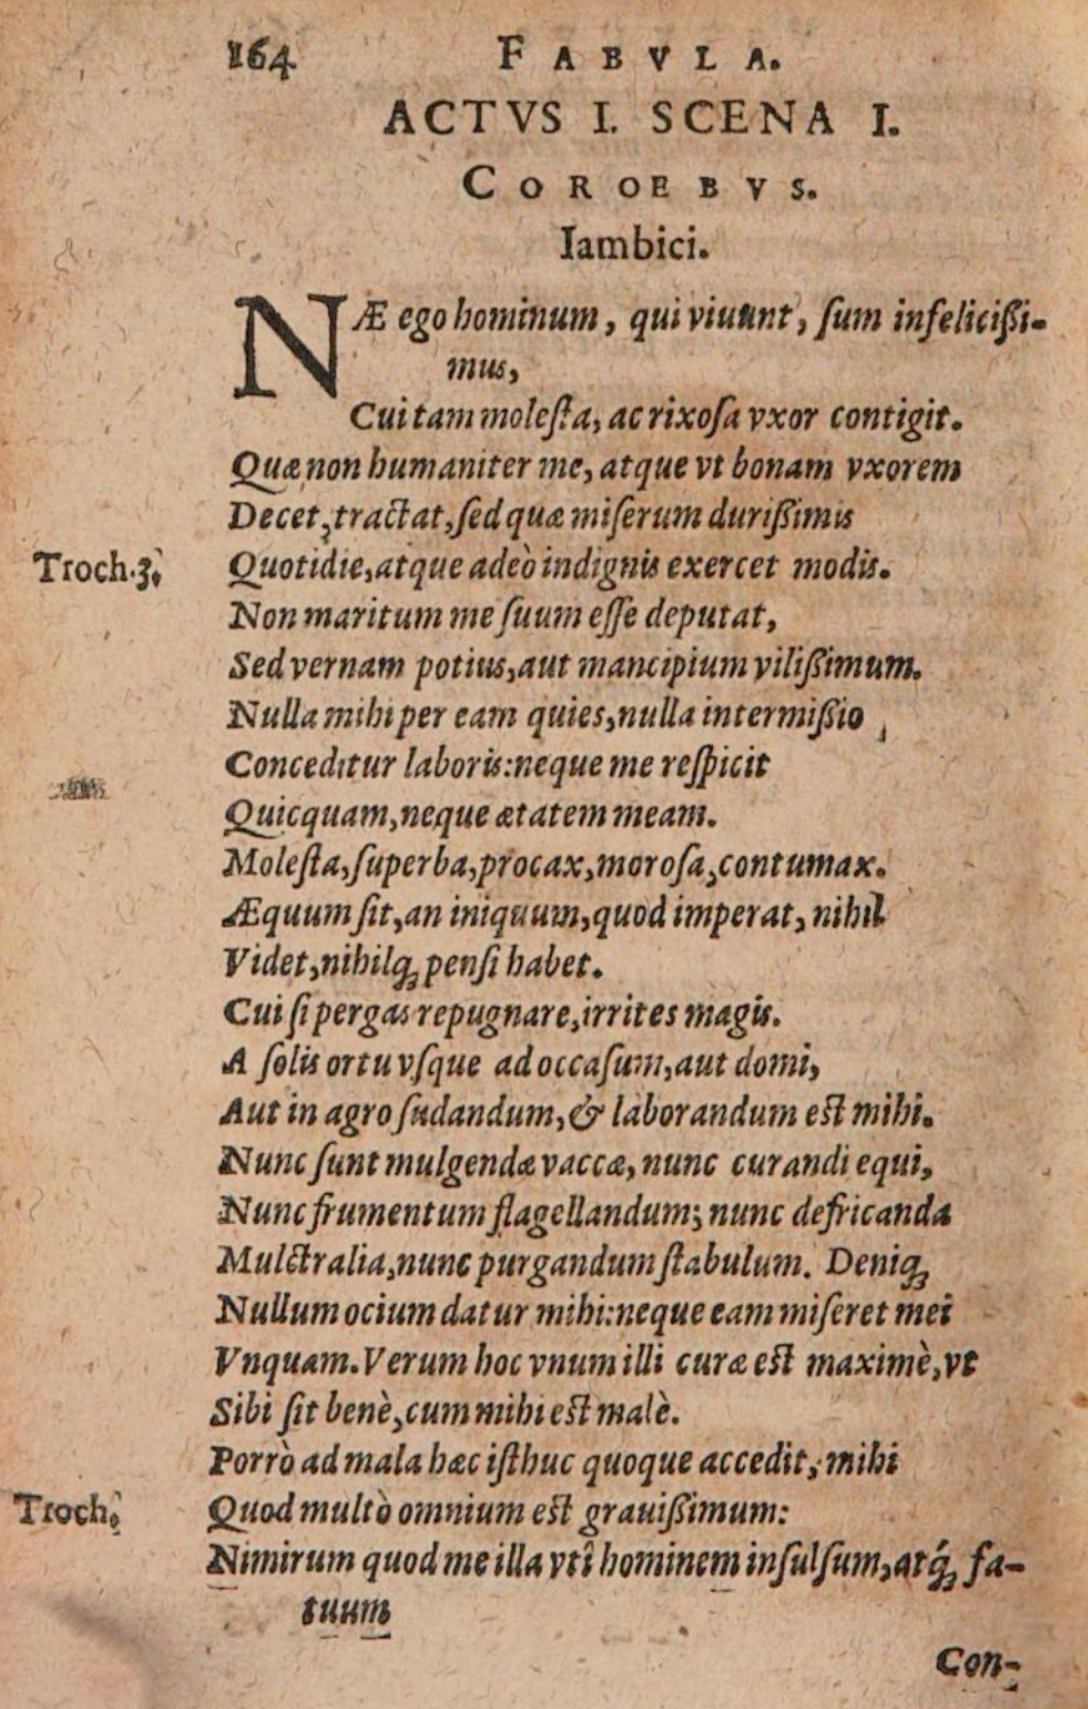 164 FABVLA.
ACTVS I. SCENA I.
COROEBVS.
Iambici.
NÆ ego hominum, qui viuunt, ſum infelicißi-
mus,
Cui tam moleſta, ac rixoſa vxor contigit.
Quæ non humaniter me, atque vt bonam vxorem
Decet, tractat, ſed quæ miſerum durißimis
Troch.3. Quotidie, atque adeò indignis exercet modis.
Non maritum me ſuum eſſe deputat,
Sed vernam potius, aut mancipium vilißimum.
Nulla mihi per eam quies, nulla intermißio
Conceditur laboris: neque me reſpicit
Quicquam, neque ætatem meam.
Moleſta, ſuperba, procax, moroſa, contumax.
Æquum ſit, an iniquum, quod imperat, nihil
Videt, nihilq; penſi habet.
Cui ſi pergas repugnare, irrites magis.
A ſolis ortu vſque ad occaſum, aut domi,
Aut in agro ſudandum, & laborandum eſt mihi.
Nunc ſunt mulgendæ vaccæ, nunc curandi equi,
Nunc frumentum flagellandum; nunc defricanda
Mulctralia, nunc purgandum ſtabulum. Deniq;
Nullum ocium datur mihi: neque eam miſeret mei
Vnquam. Verum hoc vnum illi curæ eſt maximè, vt
Sibi ſit benè, cum mihi eſt malè.
Porrò ad mala hæc iſthuc quoque accedit, mihi
Troch. Quod multò omnium eſt grauißimum:
Nimirum quod me illa vti hominem inſulſum, atq́; fa-
tuum
Con-